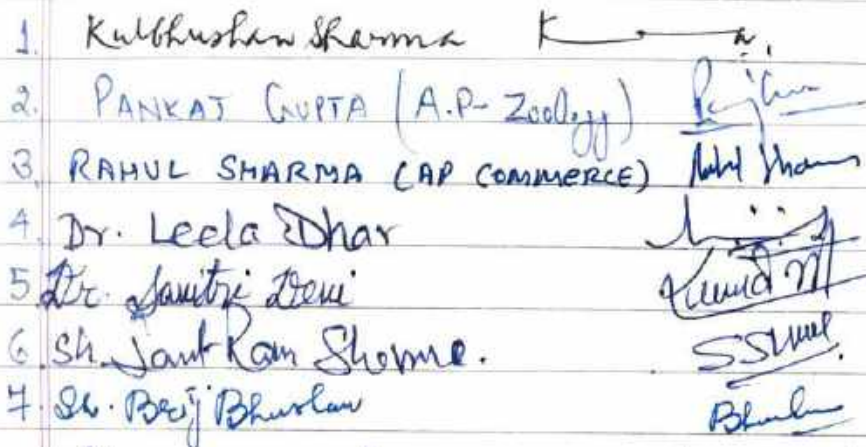 1. Kulbhushan Sharma K
2. PANKAJ GUPTA (A.P- Zoology)
3. RAHUL SHARMA (AP COMMERCE) Rahul Sharma
4. Dr. Leela Dhar
5 Dr. Savitri Devi
6 Sh. Sant Ram Sharma.
7. Sh. Brij Bhushan